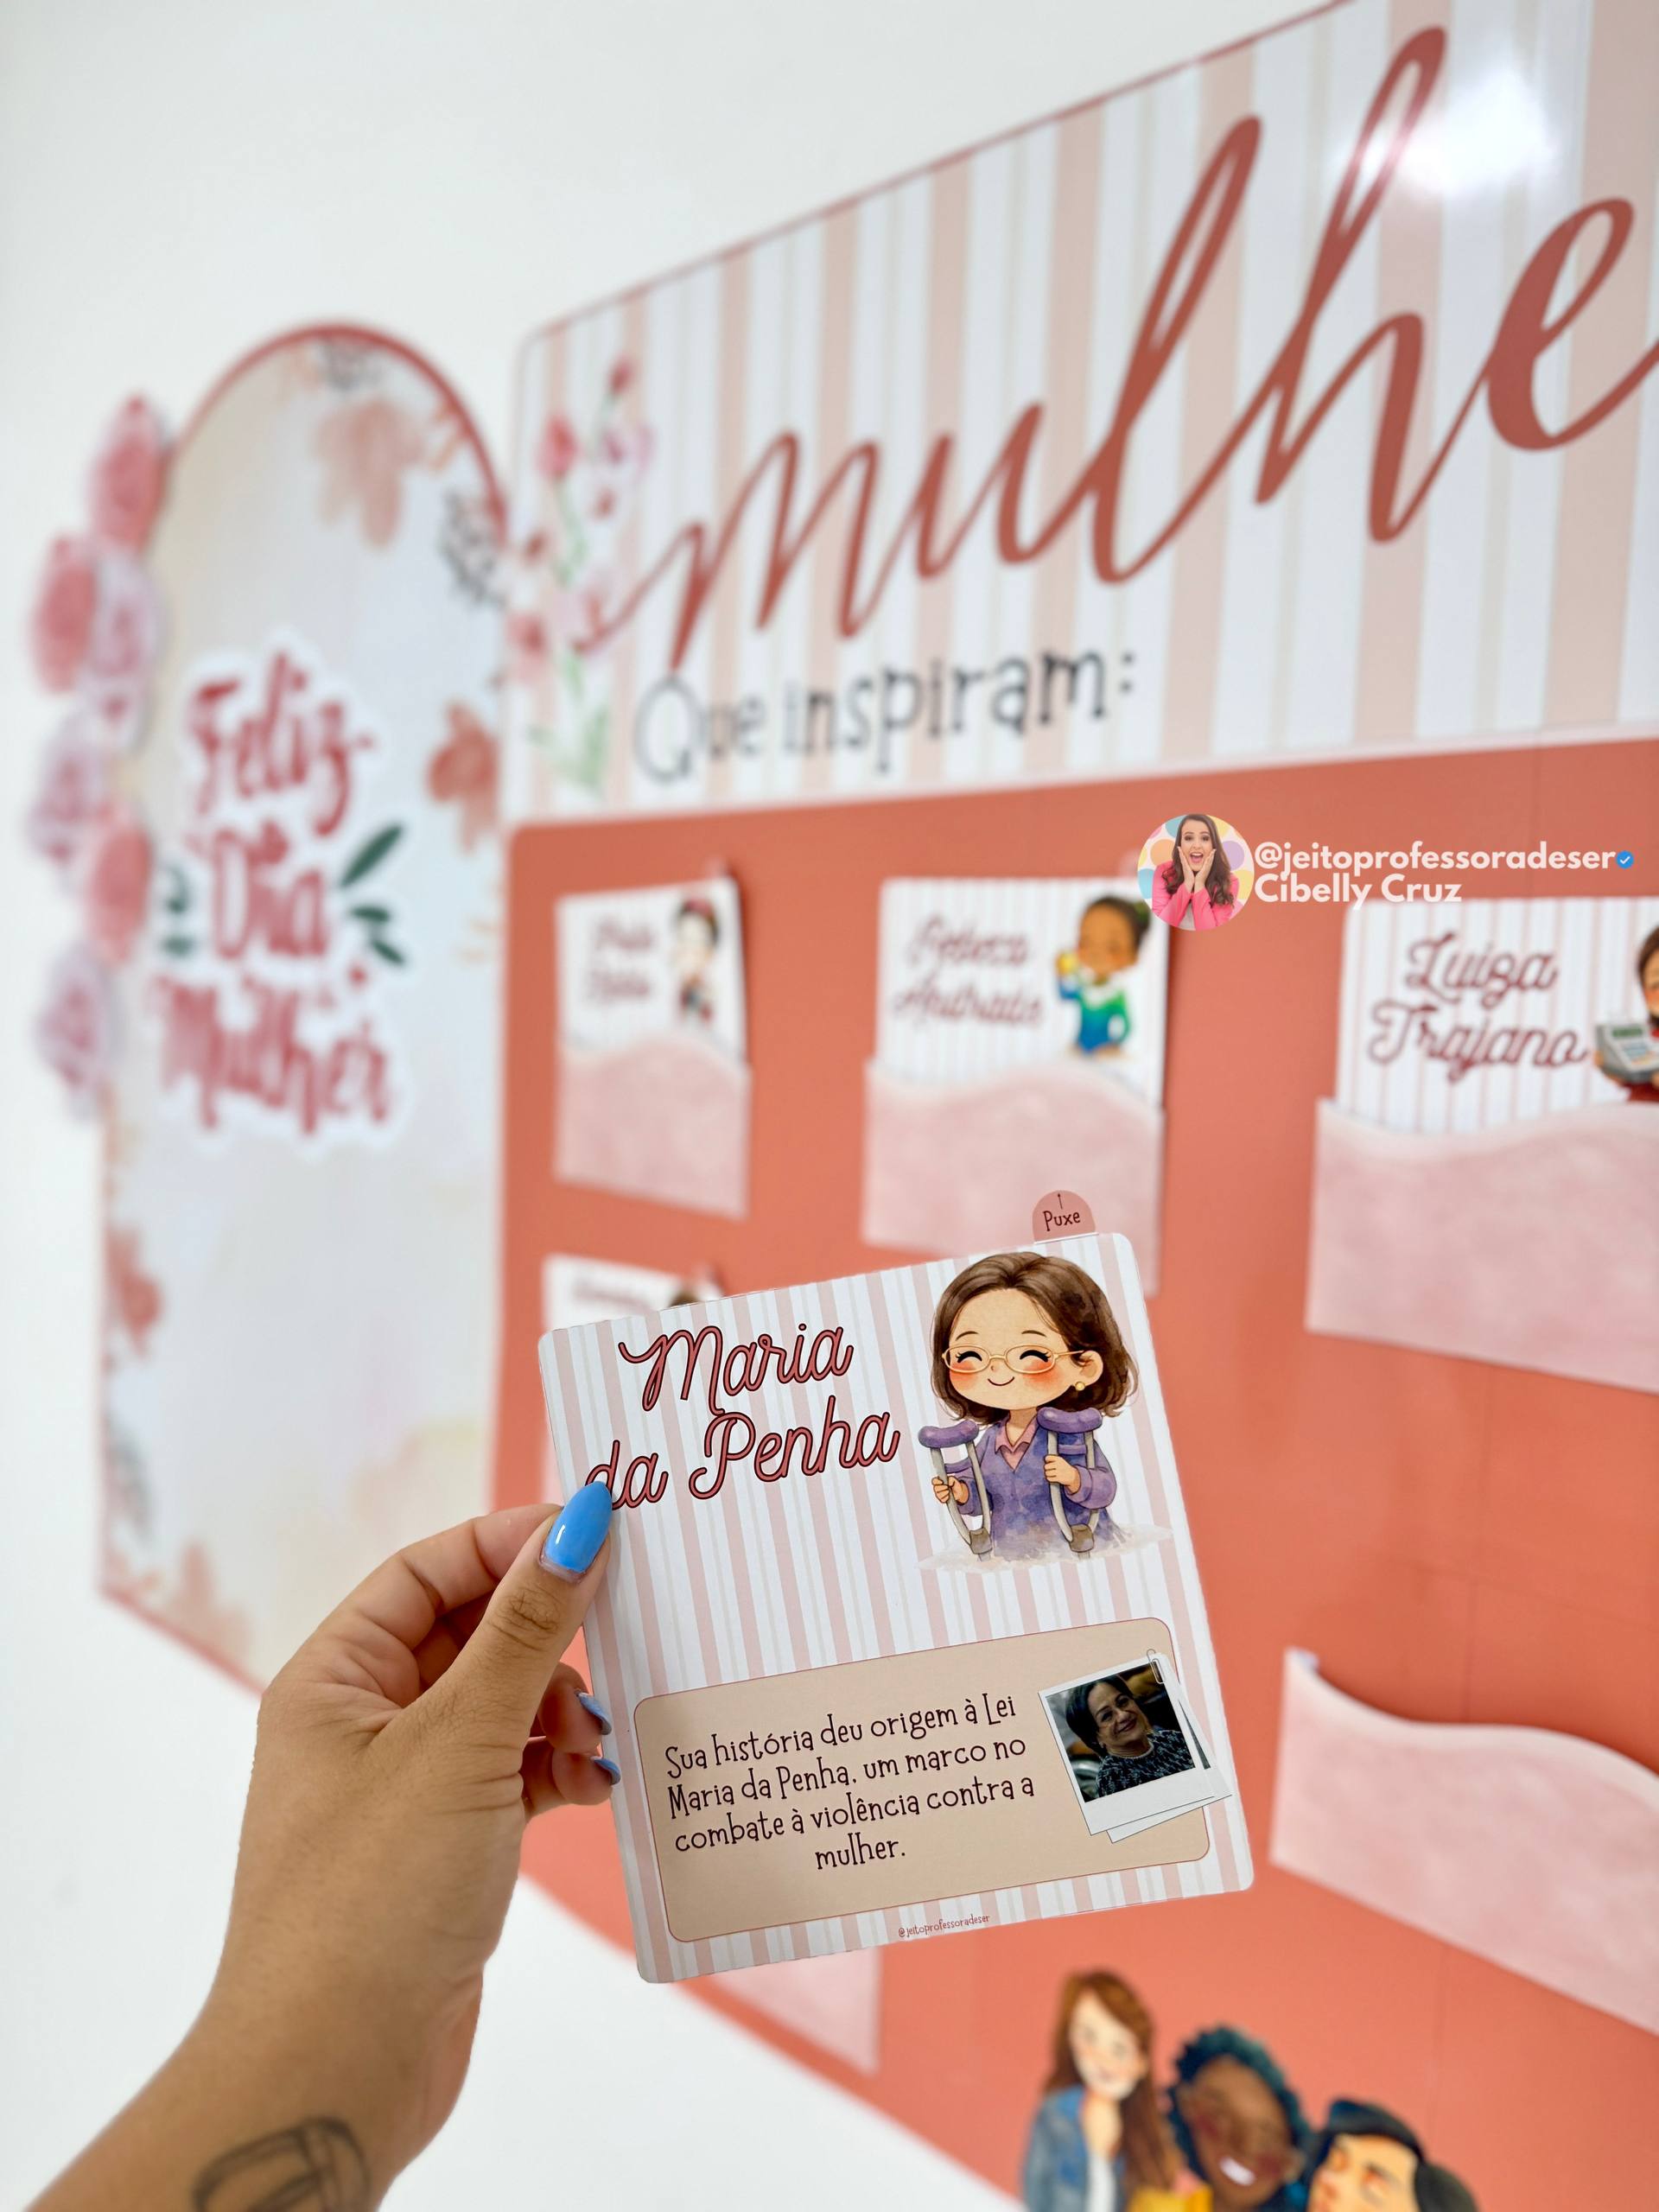 mulhe
Que inspiram:
Feliz
Dia
Mulher
@jeitoprofessoradeser
Cibelly Cruz
Frida
Kahlo
Rebeca
Andrade
Luiza
Trajano
Puxe
Maria
da Penha
Sua história deu origem à Lei
Maria da Penha, um marco no
combate à violência contra a
mulher.
@jeitoprofessoradeser